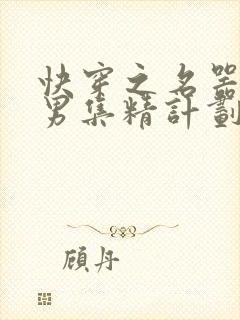 快穿之名器
男集精計劃
顧丹